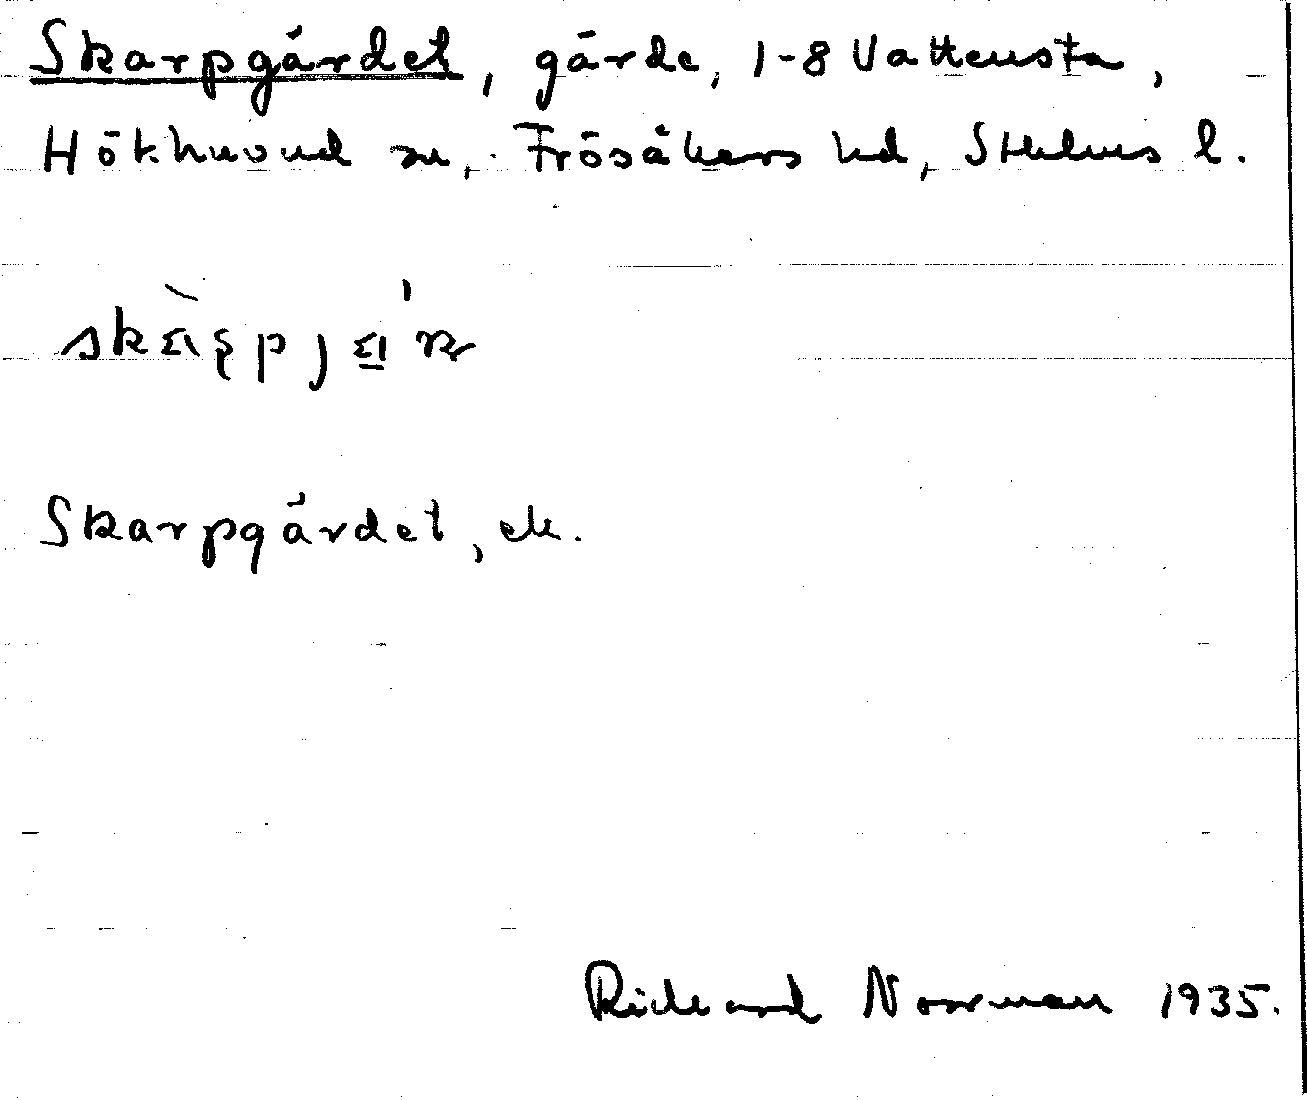 Skarpgärdet, gärde, 1-8 Vattensta,
Hökhuvud sn, Frösåkers hd, Sthlms l.
Skarpgärdet, ek.
Richard Norrman 1935.